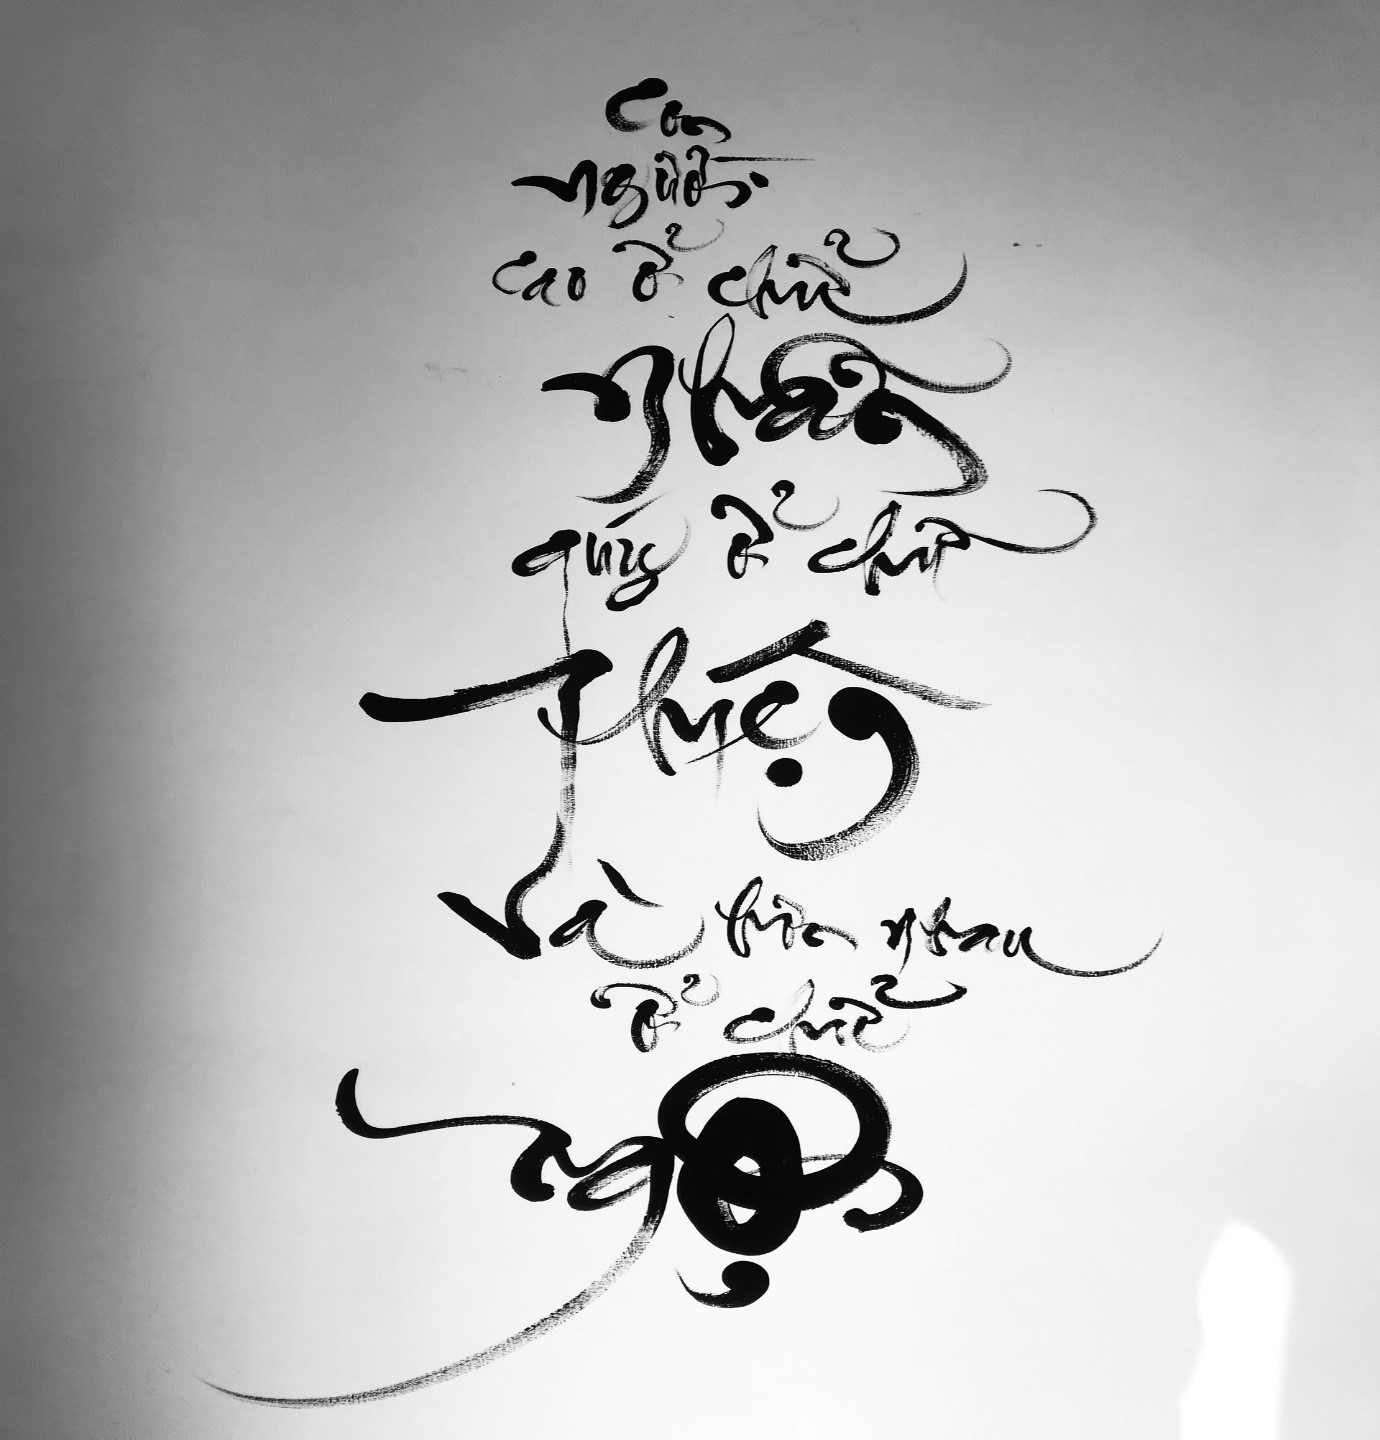 Con
người
cao ở chữ
Nhẫn
quý ở chữ
Thiện
và hơn nhau
ở chữ
Ngộ